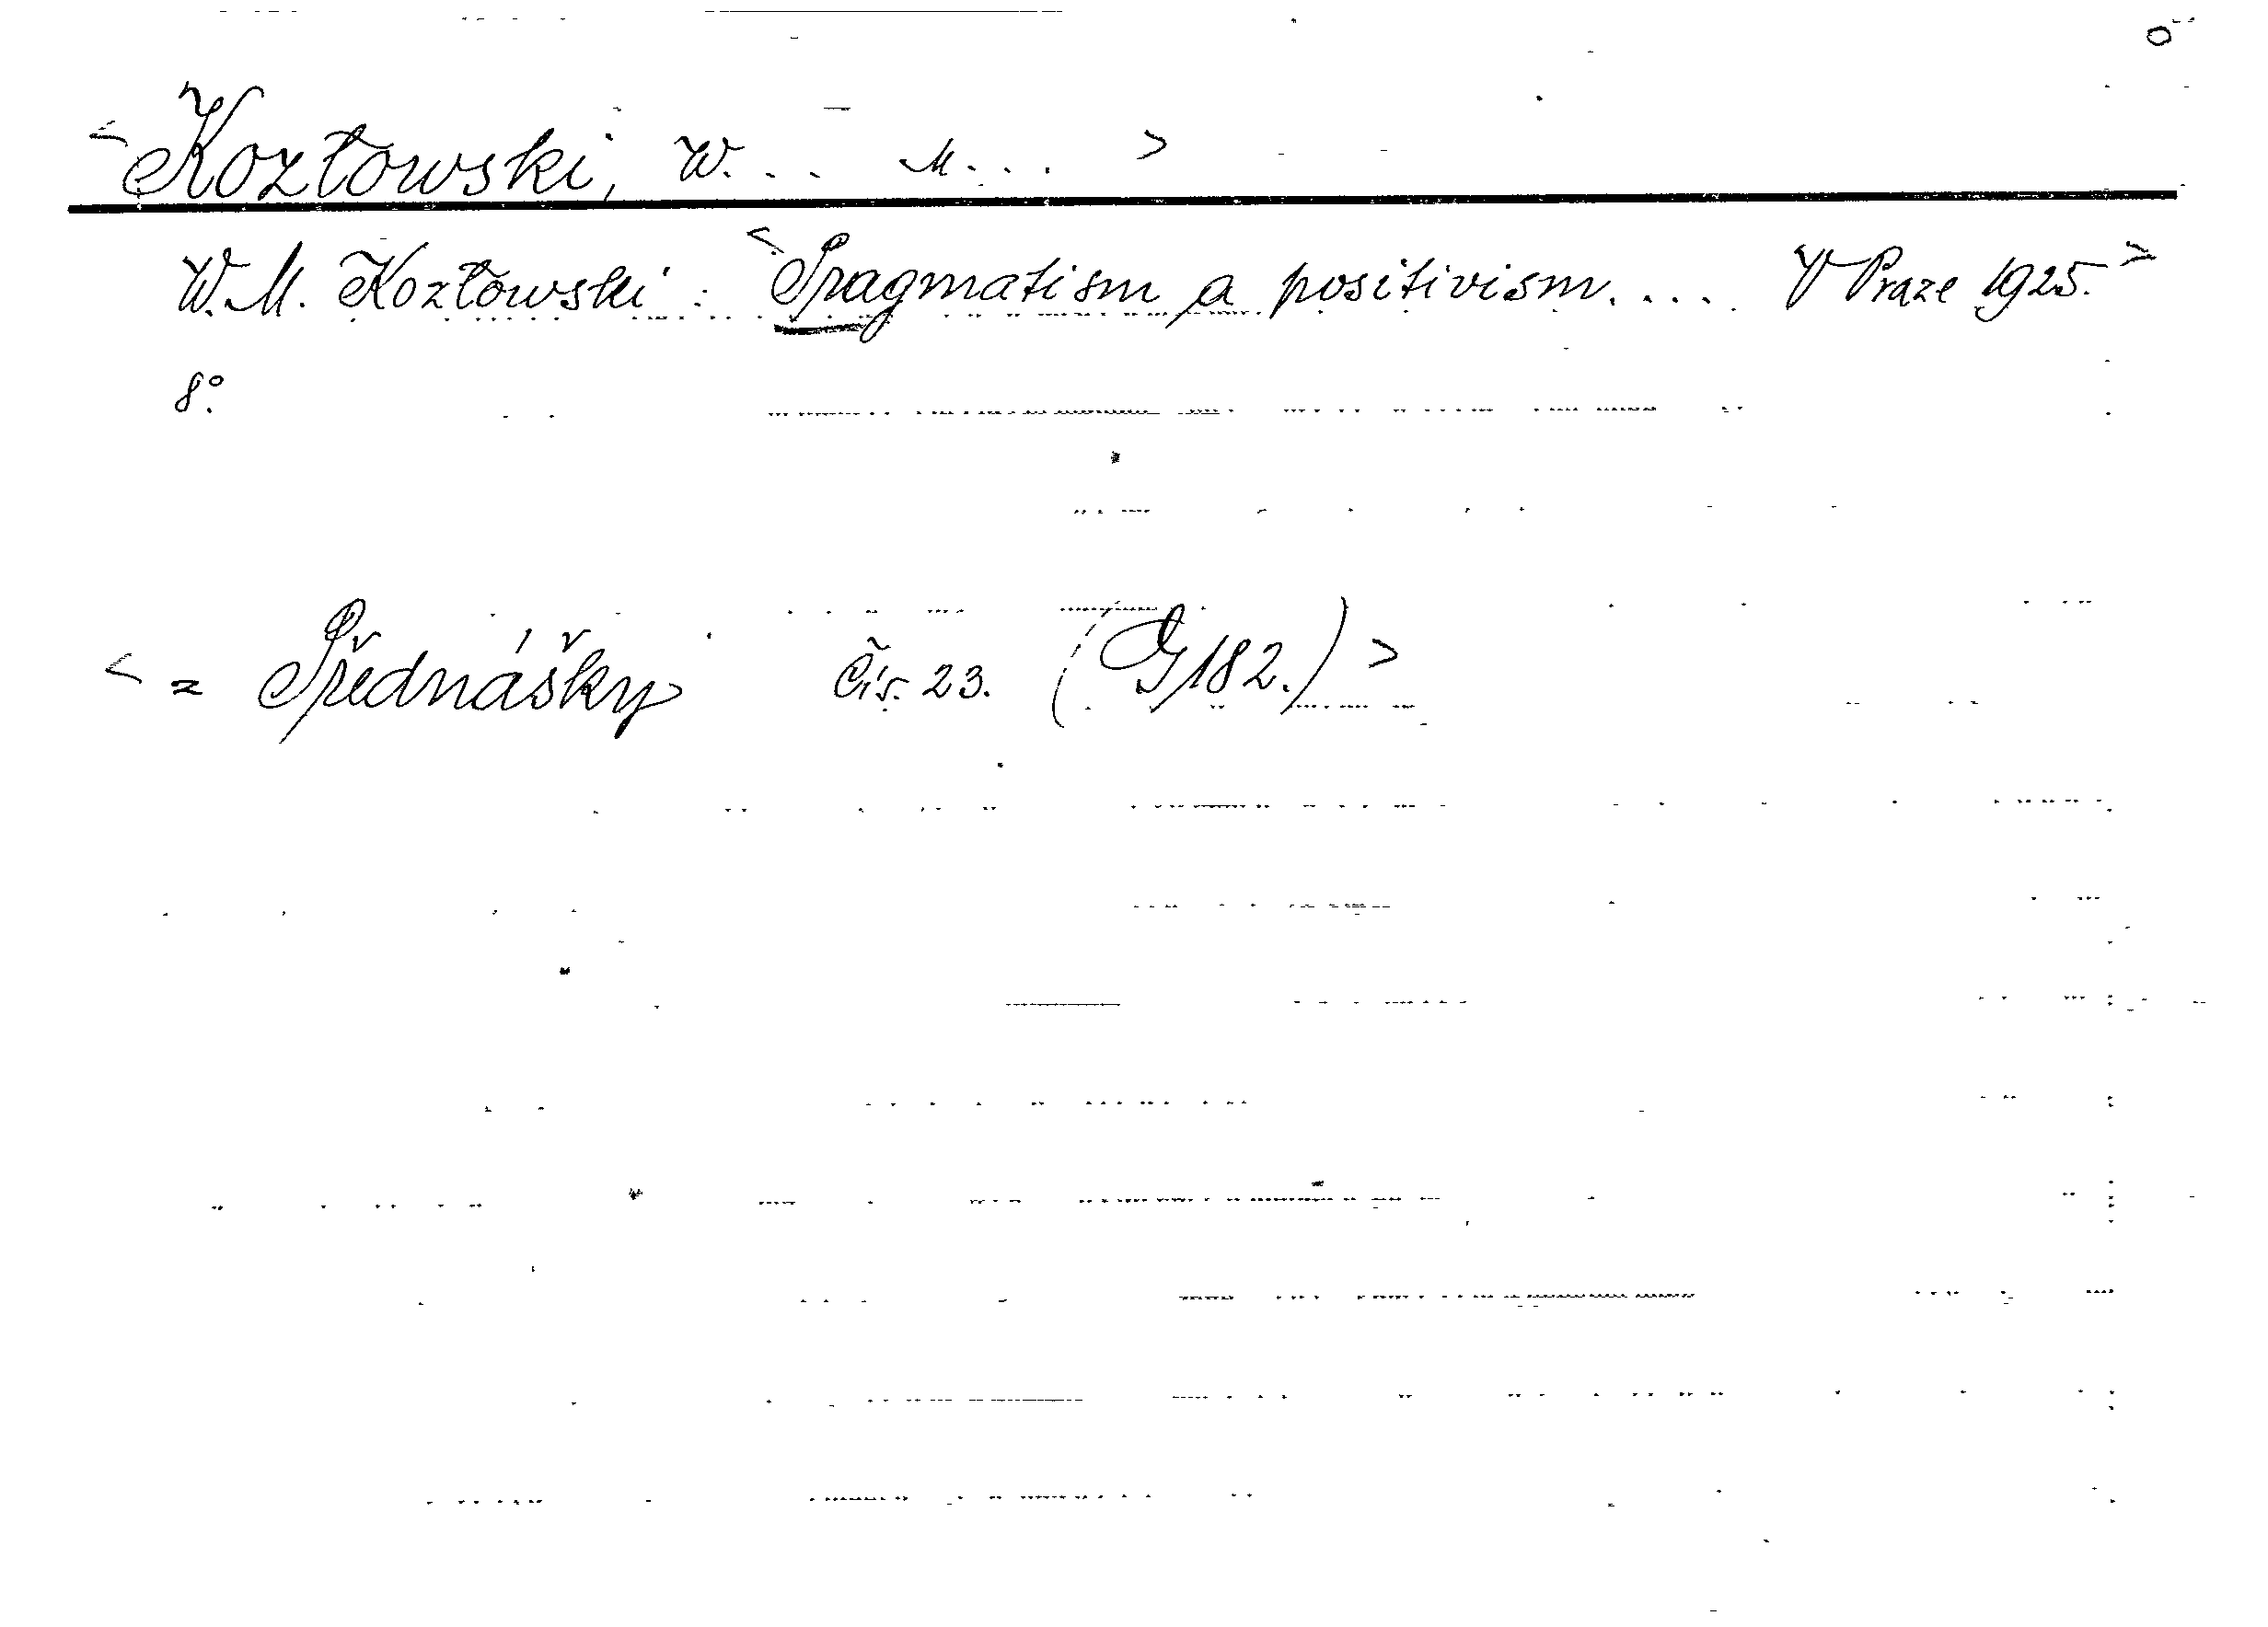 <Kozłowski, W... M...>
W. M. Kozłowski: <Pragmatism a positivism.... V Praze 1925.>
8°.
<= Přednášky Čís. 23. (G 182.)>